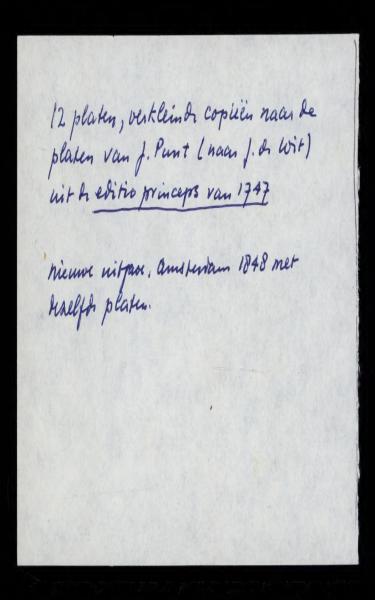 12 platen, verkleinde copiëen naar de
platen van J. Punt (naar J. de Wit)
uit de editio princeps van 1747
nieuwe uitgave, Amsterdam 1848 met
dezelfde platen.